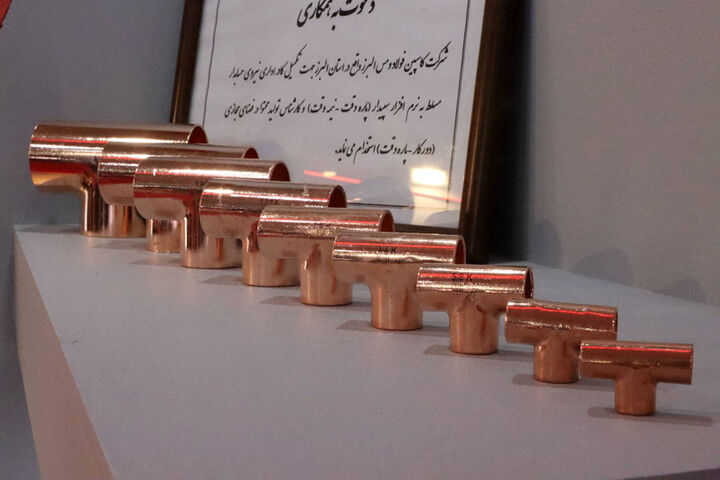 دعوت به همکاری
شرکت کاسپین فولاد و مس البرز واقع در استان البرز جهت تکمیل کادر اداری نیروی حسابدار
مسلط به نرم افزار سپیدار (پاره وقت - نیمه وقت) و کارشناس تولید محتوا در فضای مجازی
(دورکار - پاره وقت) استخدام می نماید.
3/4 K